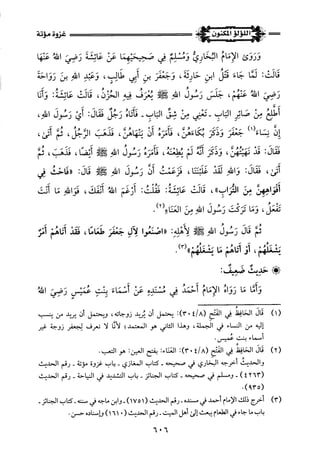 اللؤلؤ المكنون
غزوة مؤتة
وَرَوَى الإِمَامُ البُخَارِيُّ وَمُسْلِمٌ فِي صَحِيحَيْهِمَا عَنْ عَائِشَةَ رَضِيَ اللهُ عَنْهَا
قَالَتْ: لَمَّا جَاءَ قَتْلُ ابنِ حَارِثَةَ، وَجَعْفَرَ بنِ أَبِي طَالِبٍ، وَعَبْدِ اللهِ بنِ رَوَاحَةَ
رَضِيَ اللهُ عَنْهُمْ، جَلَسَ رَسُولُ اللهِ ﷺ يُعْرَفُ فِيهِ الحُزْنُ، قَالَتْ عَائِشَةُ: وَأَنَا
أَطَّلِعُ مِنْ صَائِرِ البَابِ - تَعْنِي مِنْ شِقِّ البَابِ - فَأَتَاهُ رَجُلٌ فَقَالَ: أَيْ رَسُولَ اللهِ،
إِنَّ نِسَاءَ(١) جَعْفَرَ وَذَكَرَ بُكَاءَهُنَّ، فَأَمَرَهُ أَنْ يَنْهَاهُنَّ، فَذَهَبَ الرَّجُلُ، ثُمَّ أَتَى،
فَقَالَ: قَدْ نَهَيْتُهُنَّ، وَذَكَرَ أَنَّهُ لَمْ يُطِعْنَهُ، فَأَمَرَهُ رَسُولُ اللهِ ﷺ أَيْضًا، فَذَهَبَ، ثُمَّ
أَتَى، فَقَالَ: وَاللهِ لَقَدْ غَلَبْنَنَا، فَزَعَمَتْ أَنَّ رَسُولَ اللهِ ﷺ قَالَ: «فَاحْثُ فِي
أَفْوَاهِهِنَّ مِنَ التُّرَابِ»، قَالَتْ عَائِشَةُ: فَقُلْتُ: أَرْغَمَ اللهُ أَنْفَكَ، فَوَاللهِ مَا أَنْتَ
تَفْعَلُ، وَمَا تَرَكْتَ رَسُولَ اللهِ مِنَ العَنَاءِ(٢).
ثُمَّ قَالَ رَسُولُ اللهِ ﷺ لِأَهْلِهِ: «اصْنَعُوا لِآلِ جَعْفَرَ طَعَامًا، فَقَدْ أَتَاهُمْ أَمْرٌ
يَشْغَلُهُمْ، أَوْ أَتَاهُمْ مَا يَشْغَلُهُمْ»(٣).
حَدِيثٌ ضَعِيفٌ:
وَأَمَّا مَا رَوَاهُ الإِمَامُ أَحْمَدُ فِي مُسْنَدِهِ عَنْ أَسْمَاءَ بِنْتِ عُمَيْسٍ رَضِيَ اللهُ
(١) قَالَ الحَافِظُ فِي الفَتْحِ (٣٠٤/٨): يحتمل أن يُريد زوجاته، ويحتمل أن يريد من ينسب
إليه من النساء في الجملة، وهذا الثاني هو المعتمد؛ لأنَّا لا نعرف لجعفر زوجة غير
أسماء بنت عُميس.
(٢) قَالَ الحَافِظُ فِي الفَتْحِ (٣٠٤/٨): العَنَاءُ: بفتح العين: هو التعب.
والحديث أخرجه البخاري في صحيحه - كتاب المغازي - باب غزوة مؤتة - رقم الحديث
(٤٢٦٣) - ومسلم في صحيحه - كتاب الجنائز - باب التشديد في النياحة - رقم الحديث
(٩٣٥).
(٣) أخرج ذلك الإمام أحمد في مسنده - رقم الحديث (١٧٥١) - وابن ماجه في سننه - كتاب الجنائز -
باب ما جاء في الطعام يبعث إلى أهل الميت - رقم الحديث (١٦١٠) وإسناده حسن.
٦٠٦